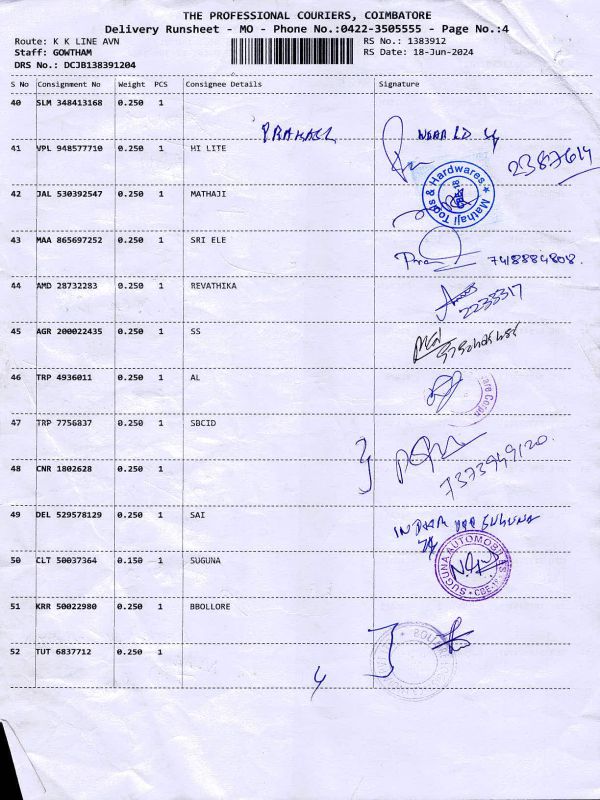 THE PROFESSIONAL COURIERS, COIMBATORE
Delivery Runsheet - MO - Phone No.:0422-3505555 - Page No.:4
Route: K K LINE AVN
RS No.: 1383912
Staff: GOWTHAM
RS Date: 18-Jun-2024
DRS No.: DCJB138391204
S No Consignment No Weight PCS Consignee Details Signature
40 SLM 348413168 0.250 1
41 VPL 948577710 0.250 1 HI LITE
2387614
42 JAL 530392547 0.250 1 MATHAJI
Mathaji Tools & Hardwares
43 MAA 865697252 0.250 1 SRI ELE
7418884808.
44 AMD 28732283 0.250 1 REVATHIKA
2233317
45 AGR 200022435 0.250 1 SS
46 TRP 4936011 0.250 1 AL
47 TRP 7756837 0.250 1 SBCID
7373949120.
48 CNR 1802628 0.250 1
49 DEL 529578129 0.250 1 SAI
50 CLT 50037364 0.150 1 SUGUNA
SUGUNA AUTOMOBILES
51 KRR 50022980 0.250 1 BBOLLORE
52 TUT 6837712 0.250 1